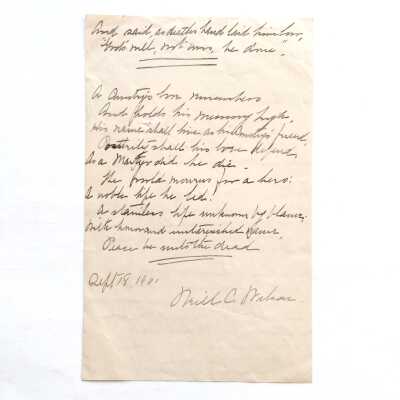 And said, as death's hand laid him low,
"God's will, not ours, be done".
A Country's love remembers
And holds his memory high,
His name shall live as his Country's friend,
Posterity shall his lose
As a Martyr did he die.
The people mourns for a hero:
A noble life he led:
A stainless life unknown by blame,
With honor and untarnished fame,
Peace be unto the dead
Sept 18, 1901
Neill C. Wilson